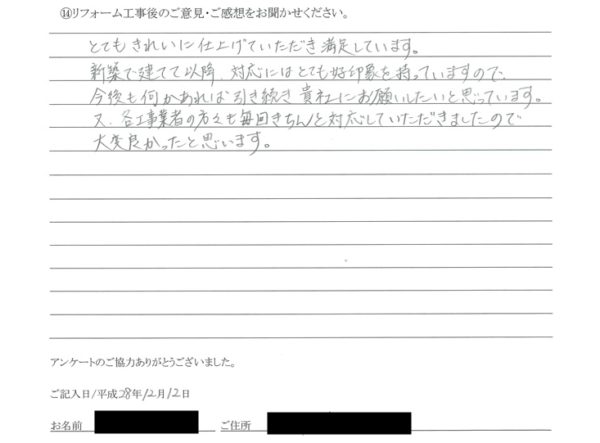 ⑭リフォーム工事後のご意見・ご感想をお聞かせください。
とてもきれいに仕上げていただき満足しています。
新築で建てて以降、対応にはとても好印象を持っていますので、
今後も何かあれば引き続き貴社にお願いしたいと思っています。
又、各工事業者の方々も毎回きちんと対応していただきましたので
大変良かったと思います。
アンケートのご協力ありがとうございました。
ご記入日/平成28年12月12日
お名前 ご住所